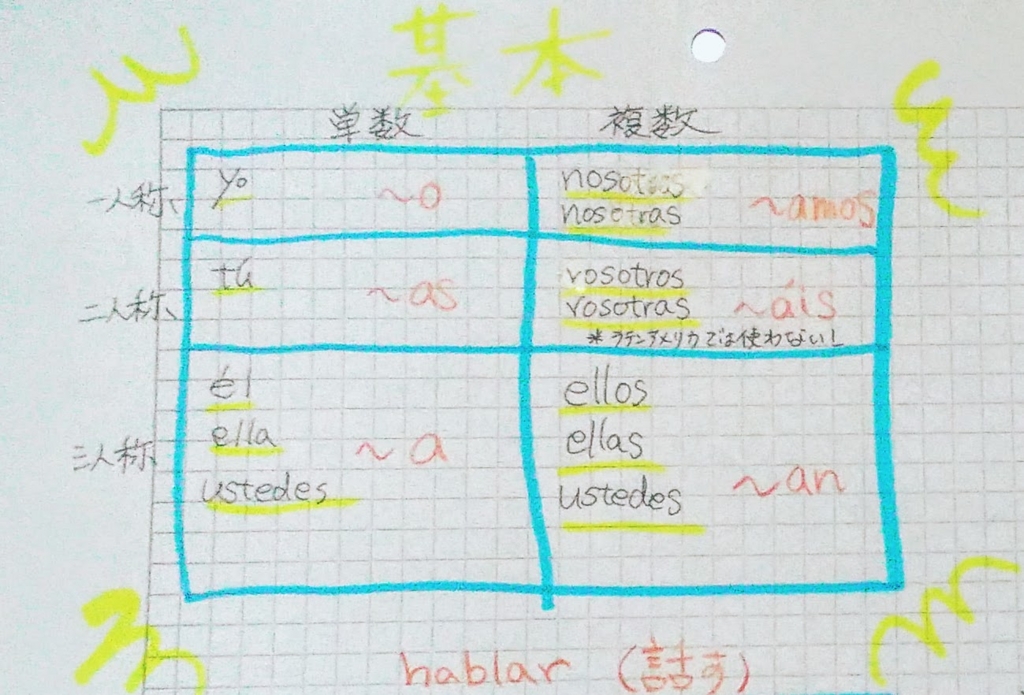 基本
単数 複数
一人称 yo ~o nosotros
nosotras ~amos
二人称 tú ~as vosotros
vosotras ~áis
*ラテンアメリカでは使わないし
三人称 él ellos
ella ~a ellas
ustedes ustedes ~an
hablar (話す)